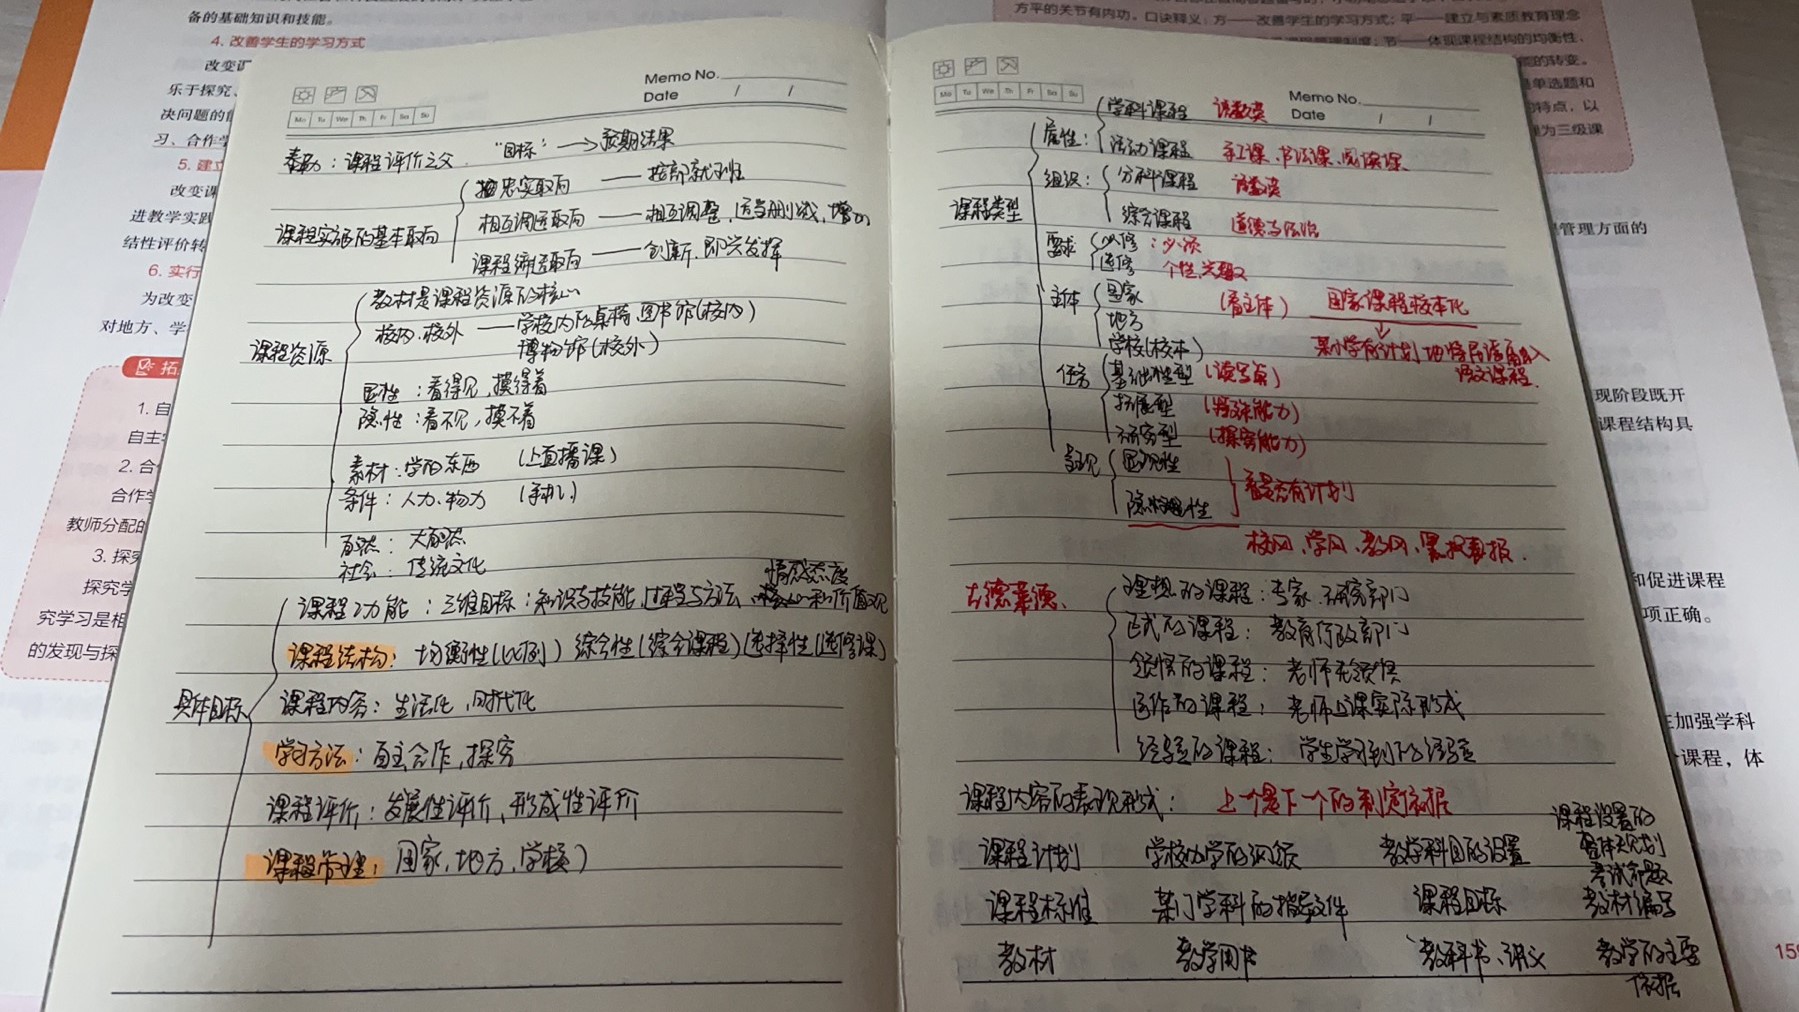 备的基础知识和技能。
4. 改善学生的学习方式
改变课
乐于探究、
决问题的能
习、合作学
5. 建立
改变课
进教学实践
结性评价转
6. 实行
为改变
对地方、学
拓
1. 自
自主
2. 合
合作学
教师分配的
3. 探究
探究学
究学习是相
的发现与探
Memo No.
Date / /
Mo Tu We Th Fr Sa Su
泰勒：课程评价之父. "目标" → 预期结果
课程实施的基本取向
忠实取向 —— 按部就班
相互调适取向 —— 相互调整，适当删减，增加
课程缔造取向 —— 创新.即兴发挥
课程资源
教材是课程资源的核心
校内、校外 —— 学校内的桌椅、图书馆(校内)
博物馆(校外)
显性：看得见，摸得着
隐性：看不见，摸不着
素材：学的东西 (上直播课)
条件：人力、物力 (手机)
自然：大自然
社会：传统文化
具体目标
情感态度
课程功能：三维目标：知识与技能，过程与方法、和价值观
课程结构：均衡性(比例) 综合性(综合课程) 选择性(选修课)
课程内容：生活化，时代化
学习方法：自主合作，探究
课程评价：发展性评价、形成性评价
课程管理：国家、地方、学校)
方平的关节有内功。口诀释义：方——改善学生的学习方式；平——建立与素质教育理念
节——体现课程结构的均衡性、
能的转变。
单选题和
的特点，以
理为三级课
程管理方面的
现阶段既开
课程结构具
和促进课程
项正确。
在加强学科
课程，体
Memo No.
Date / /
Mo Tu We Th Fr Sa Su
课程类型
属性：
学科课程 语数英
活动课程 手工课、书法课、阅读课
组织：
分科课程 语数英
综合课程 道德与法治
要求
必修：必须
选修 个性、兴趣
主体
国家 (看主体) 国家课程校本化
地方
学校(校本)
语文课程.
任务
基础性型 (读写算)
拓展型 (特殊能力)
研究型 (探究能力)
表现
显现性
隐性
看是否有计划
校风、学风、教风、黑板报.
古德莱德、
理想的课程：专家.研究部门
正式的课程：教育行政部门
领悟的课程：老师去领悟
运作的课程：老师上课实际形成
经验的课程：学生学习到的经验
课程内容的表现形式：上一个是下一个的制定依据
课程计划 学校办学的纲领 教学科目的设置 课程设置的整体规划
课程标准 某门学科的指导文件 课程目标 考试命题 教材编写
教材 教学用书 教科书、讲义 教学的主要依据